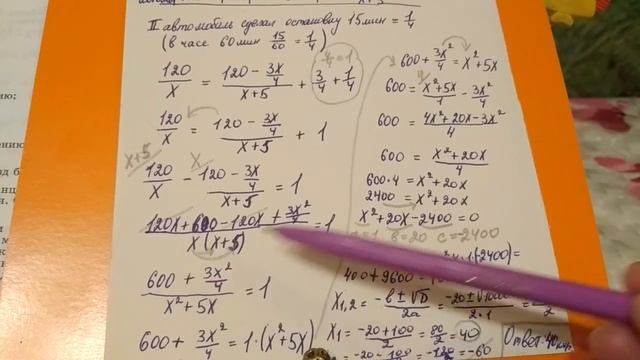 II автомобиль сделал остановку 15 мин = 1/4
(в часе 60 мин 15/60 = 1/4)
4/4 = 1
120/x = (120 - 3x/4)/(x+5) + 3/4 + 1/4
120/x = (120 - 3x/4)/(x+5) + 1
x+5 x
120/x - (120 - 3x/4)/(x+5) = 1
(120x + 600 - 120x + 3x²/4)/(x(x+5)) = 1
(600 + 3x²/4)/(x² + 5x) = 1
600 + 3x²/4 = 1·(x² + 5x)
600 + 3x²/4 = x² + 5x
600 = (x² + 5x)/1 - 3x²/4
600 = (4x² + 20x - 3x²)/4
600 = (x² + 20x)/4
600·4 = x² + 20x
2400 = x² + 20x
x² + 20x - 2400 = 0
a=1 b=20 c=-2400
·1·(-2400) =
400 + 9600 =
x1,2 = (-b ± √D)/2a = (-20 ±
2·1
x1 = (-20+100)/2 = 80/2 = 40
= (-20-100) = -120 = -60
Ответ: 40